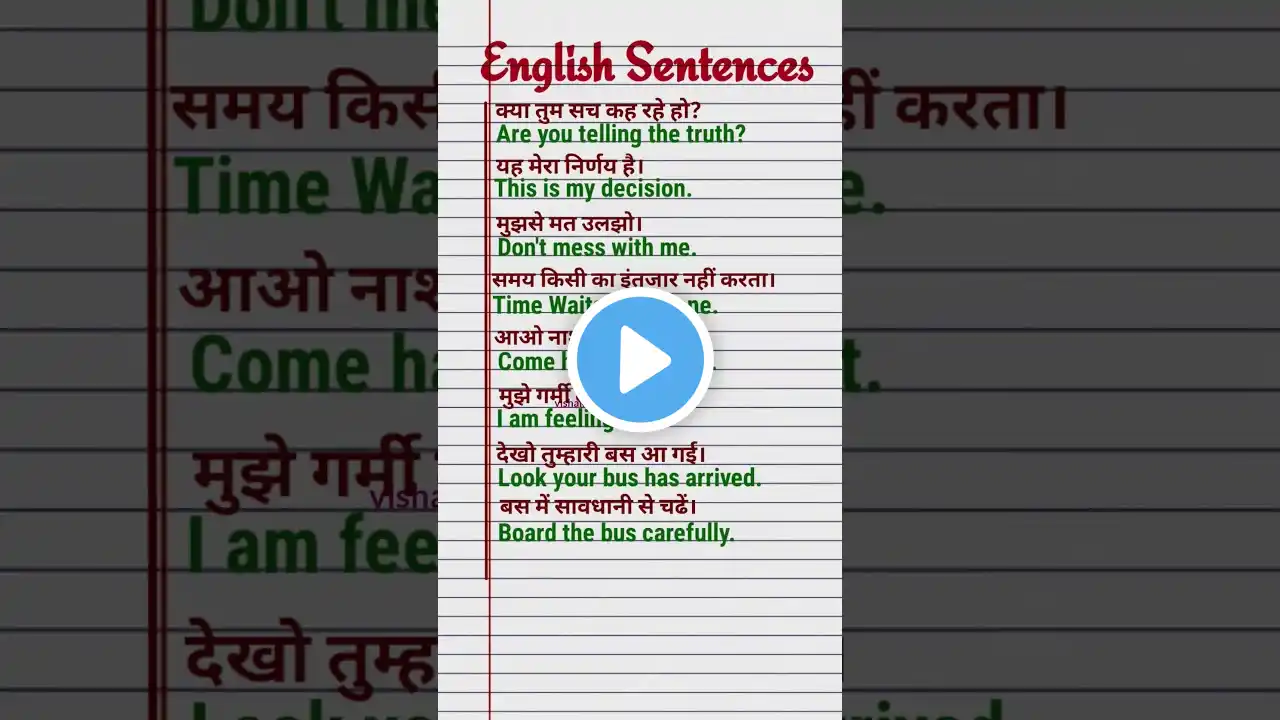 English Sentences
क्या तुम सच कह रहे हो?
Are you telling the truth?
यह मेरा निर्णय है।
This is my decision.
मुझसे मत उलझो।
Don't mess with me.
समय किसी का इंतजार नहीं करता।
Time
आओ
Come
मुझे गर्मी
I am feeling
देखो तुम्हारी बस आ गई।
Look your bus has arrived.
बस में सावधानी से चढें।
Board the bus carefully.